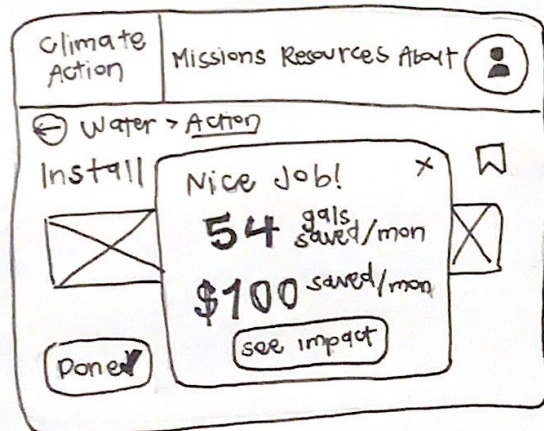 Climate
Action
Missions Resources About
Water > Action
Install
Nice Job!
x
54 gals
saved/mon
$100 saved/mon
see impact
Done